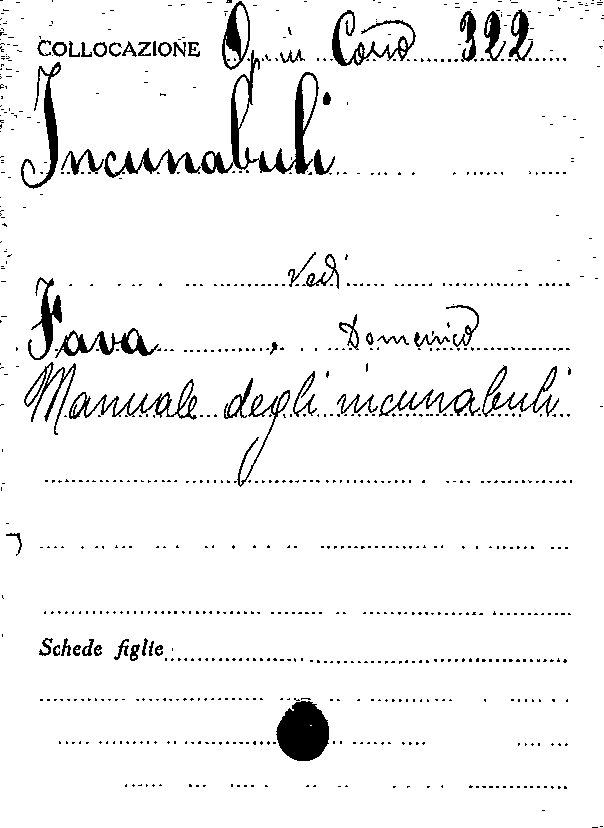 COLLOCAZIONE Op. in Corso 322
Incunabuli
Vedi
Fava, Domenico
Manuale degli incunabuli
Schede figlie